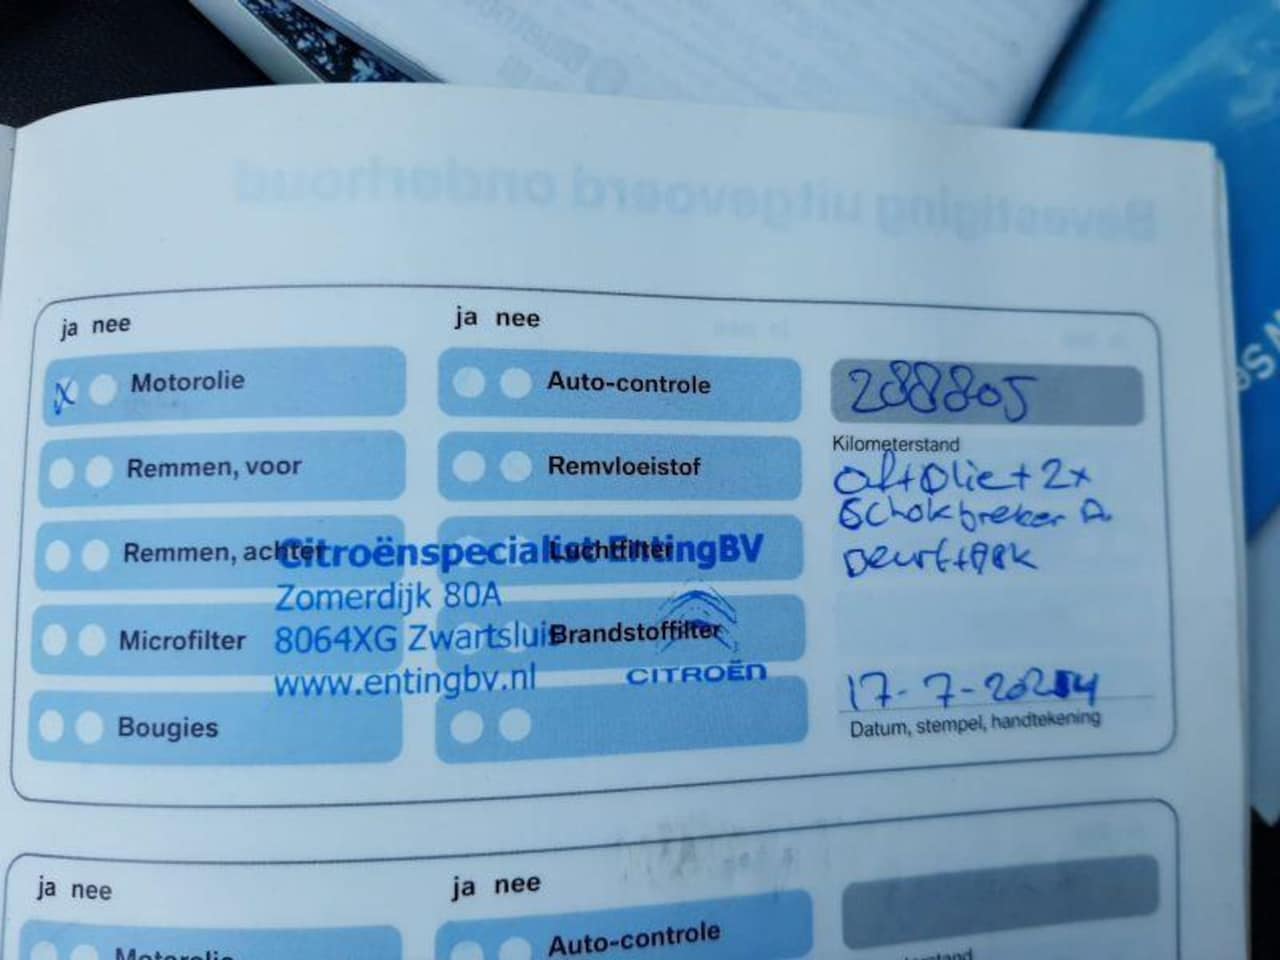 ja nee
ja nee
x Motorolie
Auto-controle
288805
Remmen, voor
Remvloeistof
Kilometerstand
olie + 2x
Schokbreker A.
Remmen, achter
Luchtfilter
Citroënspecialist Enting BV
Zomerdijk 80A
8064XG Zwartsluis
www.entingbv.nl
CITROËN
Microfilter
Brandstoffilter
Bougies
17-7-2024
Datum, stempel, handtekening
ja nee
ja nee
Motorolie
Auto-controle
Bevestiging uitgevoerd onderhoud